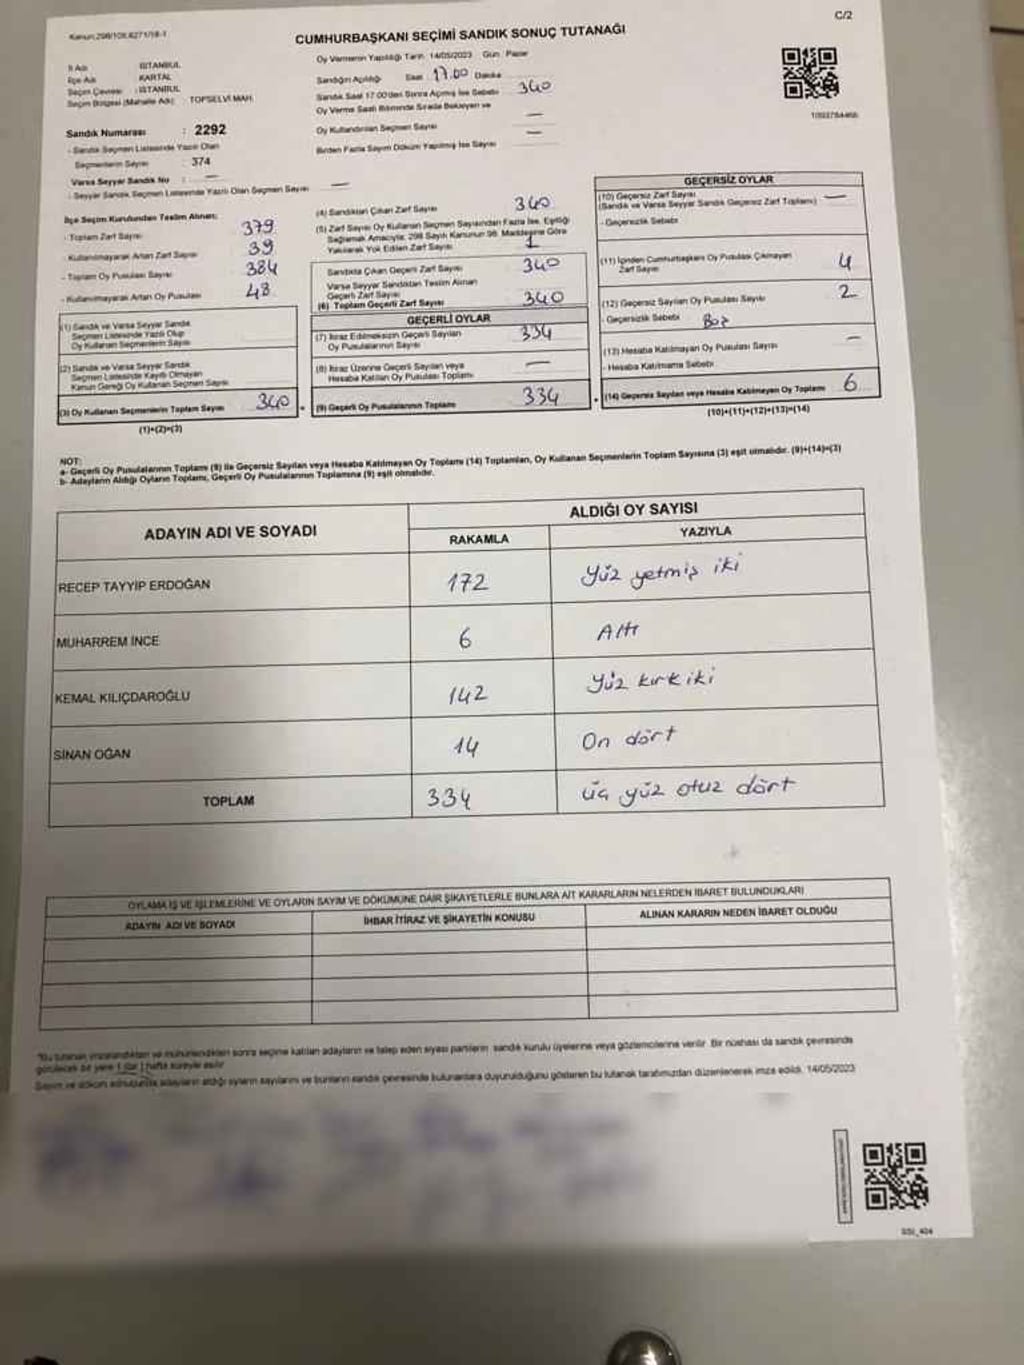 Kanun:298/105,6271/18-1
C/2
CUMHURBAŞKANI SEÇİMİ SANDIK SONUÇ TUTANAĞI
İl Adı : İSTANBUL
İlçe Adı : KARTAL
Seçim Çevresi : İSTANBUL
Seçim Bölgesi (Mahalle Adı) : TOPSELVİ MAH.
Sandık Numarası : 2292
- Sandık Seçmen Listesinde Yazılı Olan
Seçmenlerin Sayısı : 374
Varsa Seyyar Sandık No : —
- Seyyar Sandık Seçmen Listesinde Yazılı Olan Seçmen Sayısı —
Oy Vermenin Yapıldığı Tarih 14/05/2023 Gün : Pazar
Sandığın Açıldığı Saat 17.00 Dakika
Sandık Saat 17.00'den Sonra Açılmış İse Sebebi 340
Oy Verme Saati Bitiminde Sırada Bekleyen ve
Oy Kullandırılan Seçmen Sayısı —
Birden Fazla Sayım Döküm Yapılmış İse Sayısı —
1093784466
İlçe Seçim Kurulundan Teslim Alınan:
- Toplam Zarf Sayısı 379
- Kullanılmayarak Artan Zarf Sayısı 39
- Toplam Oy Pusulası Sayısı 384
- Kullanılmayarak Artan Oy Pusulası 48
(1) Sandık ve Varsa Seyyar Sandık
Seçmen Listesinde Yazılı Olup
Oy Kullanan Seçmenlerin Sayısı
(2) Sandık ve Varsa Seyyar Sandık
Seçmen Listesinde Kayıtlı Olmayan
Kanun Gereği Oy Kullanan Seçmen Sayısı
(3) Oy Kullanan Seçmenlerin Toplam Sayısı 340
(1)+(2)=(3)
(4) Sandıktan Çıkan Zarf Sayısı 340
(5) Zarf Sayısı Oy Kullanan Seçmen Sayısından Fazla İse, Eşitliği
Sağlamak Amacıyla; 298 Sayılı Kanunun 98. Maddesine Göre
Yakılarak Yok Edilen Zarf Sayısı 1
Sandıkta Çıkan Geçerli Zarf Sayısı 340
Varsa Seyyar Sandıktan Teslim Alınan
Geçerli Zarf Sayısı
(6) Toplam Geçerli Zarf Sayısı 340
GEÇERLİ OYLAR
(7) İtiraz Edilmeksizin Geçerli Sayılan
Oy Pusulalarının Sayısı 334
(8) İtiraz Üzerine Geçerli Sayılan veya
Hesaba Katılan Oy Pusulası Toplamı —
(9) Geçerli Oy Pusulalarının Toplamı 334
GEÇERSİZ OYLAR
(10) Geçersiz Zarf Sayısı
(Sandık ve Varsa Seyyar Sandık Geçersiz Zarf Toplamı) —
- Geçersizlik Sebebi
(11) İçinden Cumhurbaşkanı Oy Pusulası Çıkmayan
Zarf Sayısı 4
(12) Geçersiz Sayılan Oy Pusulası Sayısı 2
- Geçersizlik Sebebi Boş
(13) Hesaba Katılmayan Oy Pusulası Sayısı —
- Hesaba Katılmama Sebebi
(14) Geçersiz Sayılan veya Hesaba Katılmayan Oy Toplamı 6
(10)+(11)+(12)+(13)=(14)
NOT:
a- Geçerli Oy Pusulalarının Toplamı (9) ile Geçersiz Sayılan veya Hesaba Katılmayan Oy Toplamı (14) Toplamları, Oy Kullanan Seçmenlerin Toplam Sayısına (3) eşit olmalıdır. (9)+(14)=(3)
b- Adayların Aldığı Oyların Toplamı, Geçerli Oy Pusulalarının Toplamına (9) eşit olmalıdır.
ADAYIN ADI VE SOYADI ALDIĞI OY SAYISI
RAKAMLA YAZIYLA
RECEP TAYYİP ERDOĞAN 172 Yüz yetmiş iki
MUHARREM İNCE 6 Altı
KEMAL KILIÇDAROĞLU 142 Yüz kırk iki
SİNAN OĞAN 14 On dört
TOPLAM 334 üç yüz otuz dört
OYLAMA İŞ VE İŞLEMLERİNE VE OYLARIN SAYIM VE DÖKÜMÜNE DAİR ŞİKAYETLERLE BUNLARA AİT KARARLARIN NELERDEN İBARET BULUNDUKLARI
ADAYIN ADI VE SOYADI İHBAR İTİRAZ VE ŞİKAYETİN KONUSU ALINAN KARARIN NEDEN İBARET OLDUĞU
"Bu tutanak imzalandıktan ve mühürlendikten sonra seçime katılan adayların ve talep eden siyasi partilerin sandık kurulu üyelerine veya gözlemcilerine verilir. Bir nüshası da sandık çevresinde
görülecek bir yere 1 (bir) hafta süreyle asılır.
Sayım ve döküm sonuçunda adayların aldığı oyların sayılarını ve bunların sandık çevresinde bulunanlara duyurulduğunu gösteren bu tutanak tarafımızdan düzenlenerek imza edildi. 14/05/2023